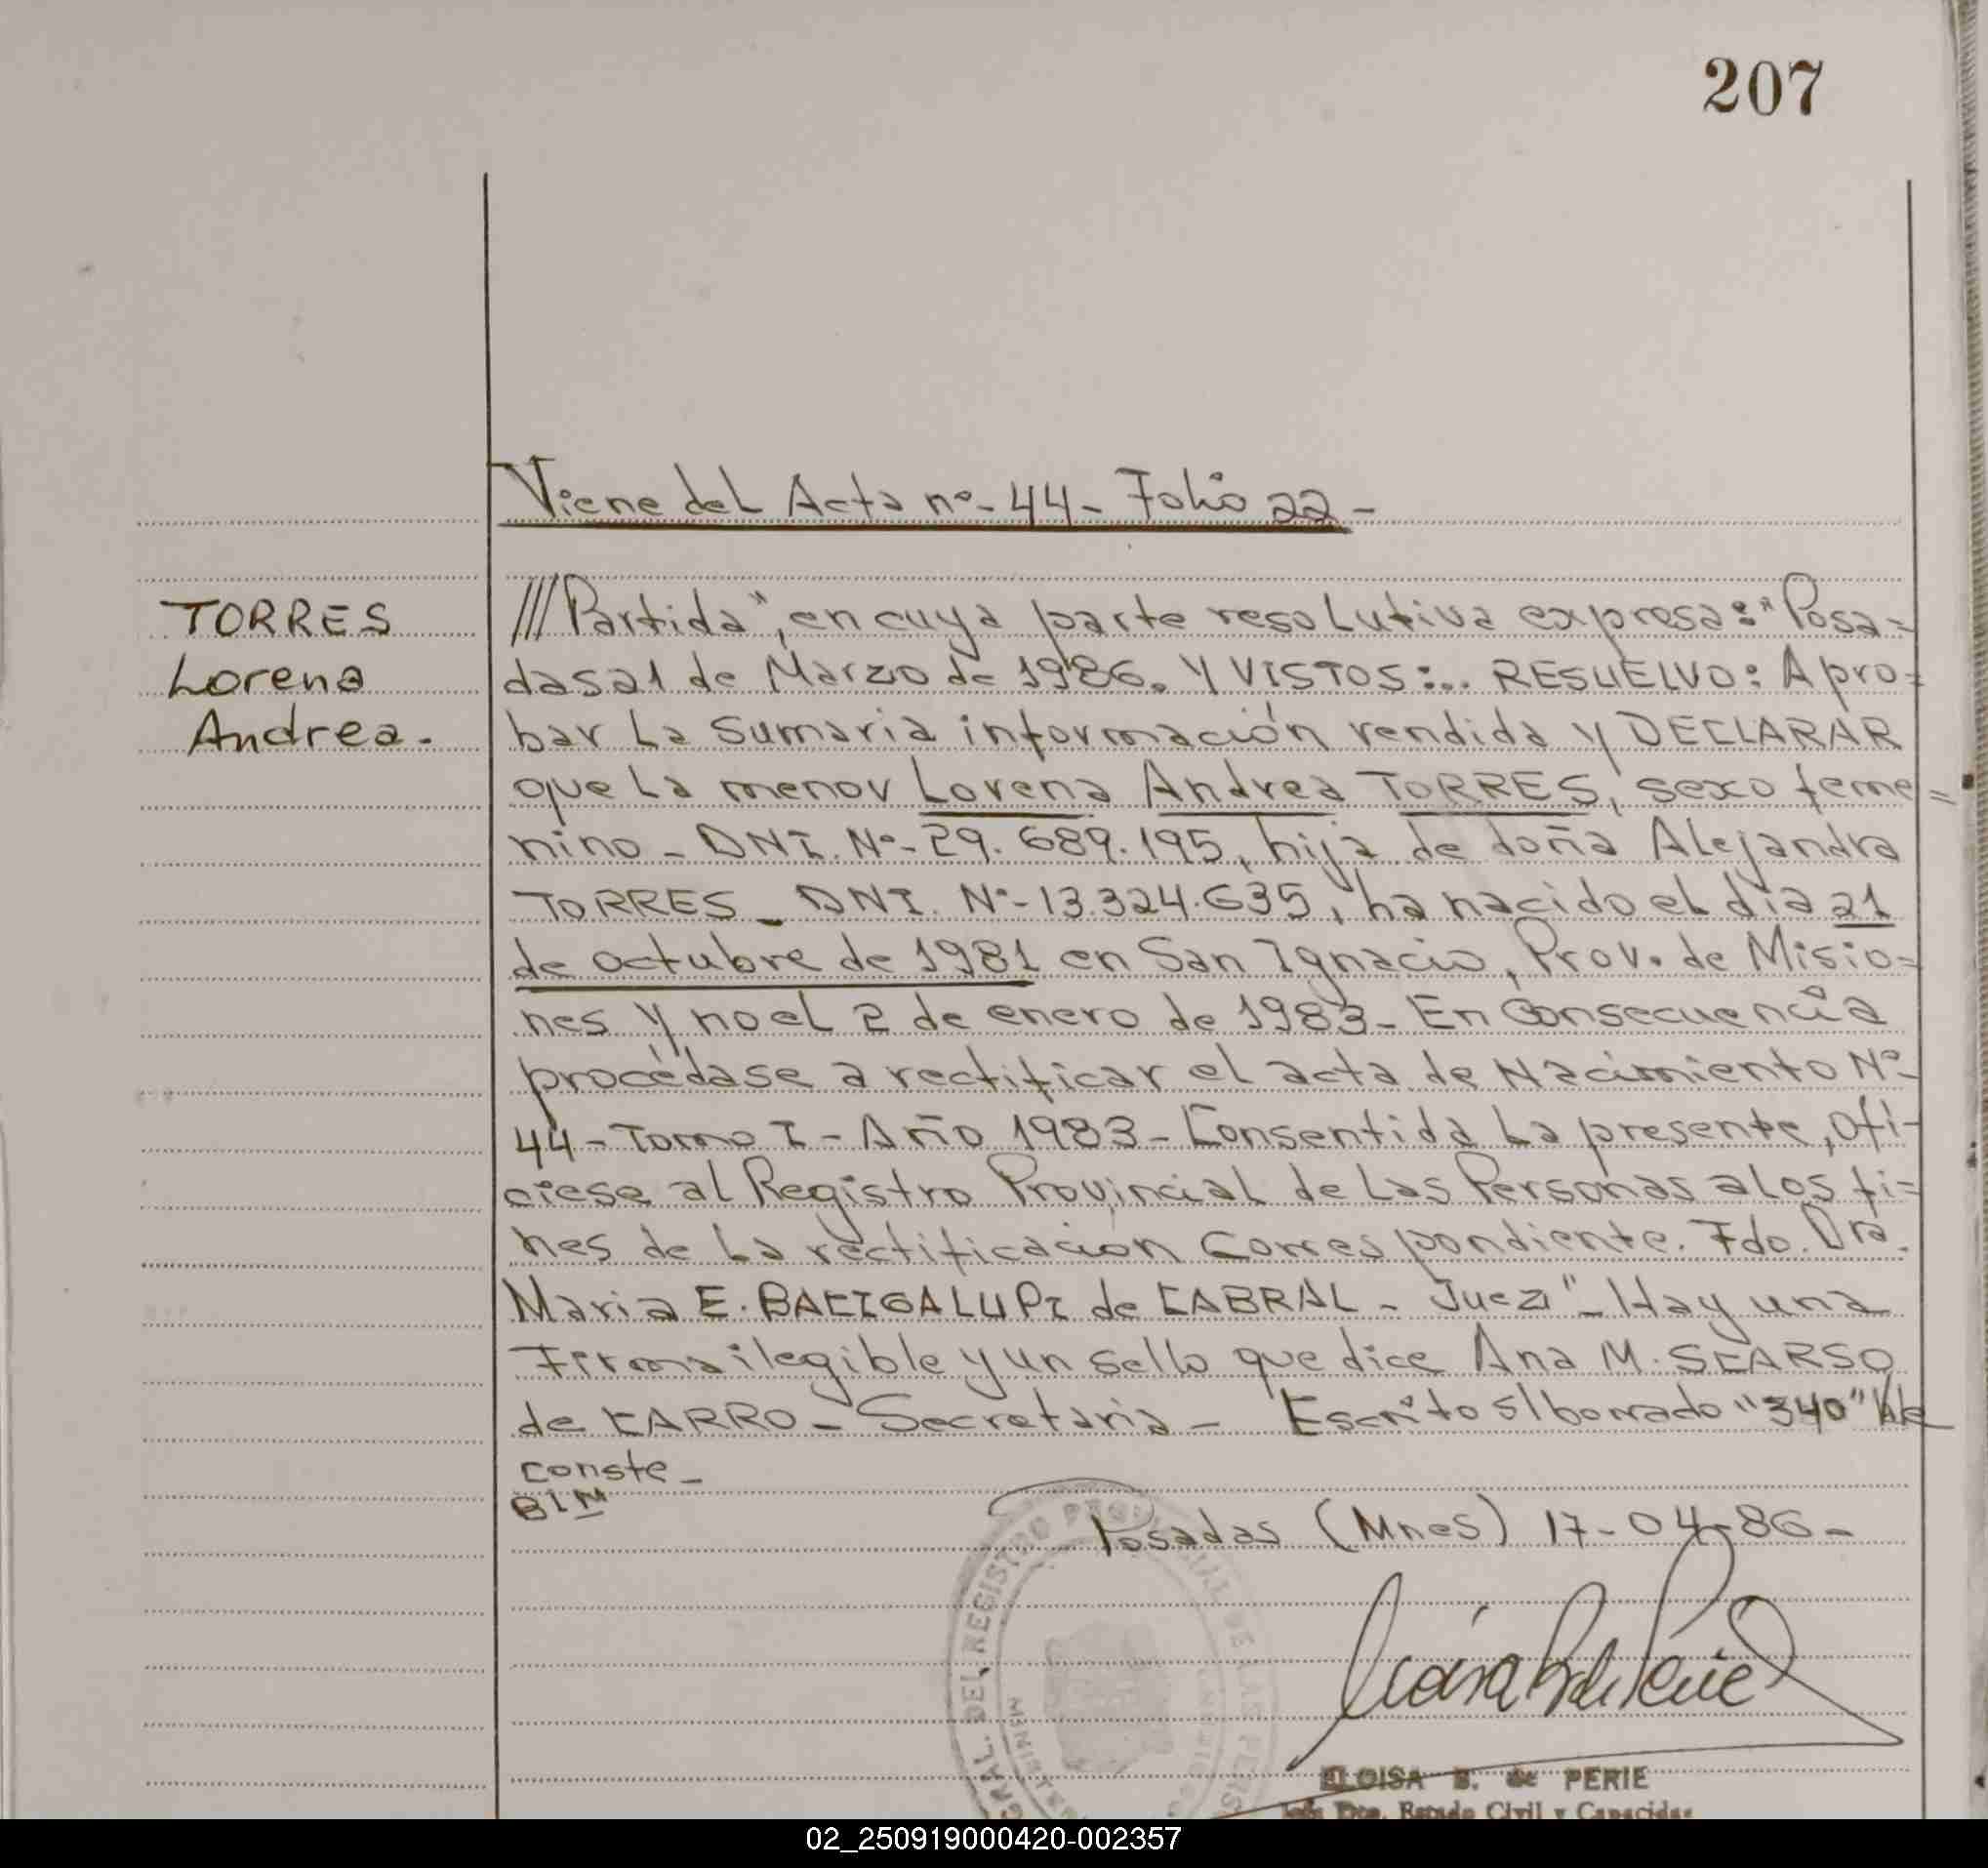 207
Viene del Acta nº-44- Folio 22-
TORRES
Lorena
Andrea.
///Partida", en cuya parte resolutiva expresa: "Posa=
das 21 de Marzo de 1986. Y VISTOS:.. RESUELVO: Apro=
bar La Sumaria información rendida y DECLARAR
que La menor Lorena Andrea TORRES, sexo feme=
nino - DNI. Nº-29.689.195, hija de doña Alejandra
TORRES - DNI. Nº-13.324.635, ha nacido el día 21
de octubre de 1981 en San Ignacio, Prov. de Misio=
nes y no el 2 de enero de 1983- En Consecuencia
procédase a rectificar el acta de Nacimiento Nº-
44- Tomo I - Año 1983- Consentida La presente, ofi-
ciese al Registro Provincial de Las Personas a Los fi=
nes de La rectificación Correspondiente. Fdo. Dra.
Maria E. BACIGALUPI de CABRAL - Juez"- Hay una
Firma ilegible y un sello que dice Ana M. SEARSO
de CARRO - Secretaria - Escrito s/borrado "340" Vale
conste-
BIM
Posadas (Mnes) 17-04-86-
GRAL. DEL REGISTRO PROVINCIAL DE LAS PERS
ELOISA B. de PERIE
Jefa Dto. Estado Civil y Capacidad
02_250919000420-002357